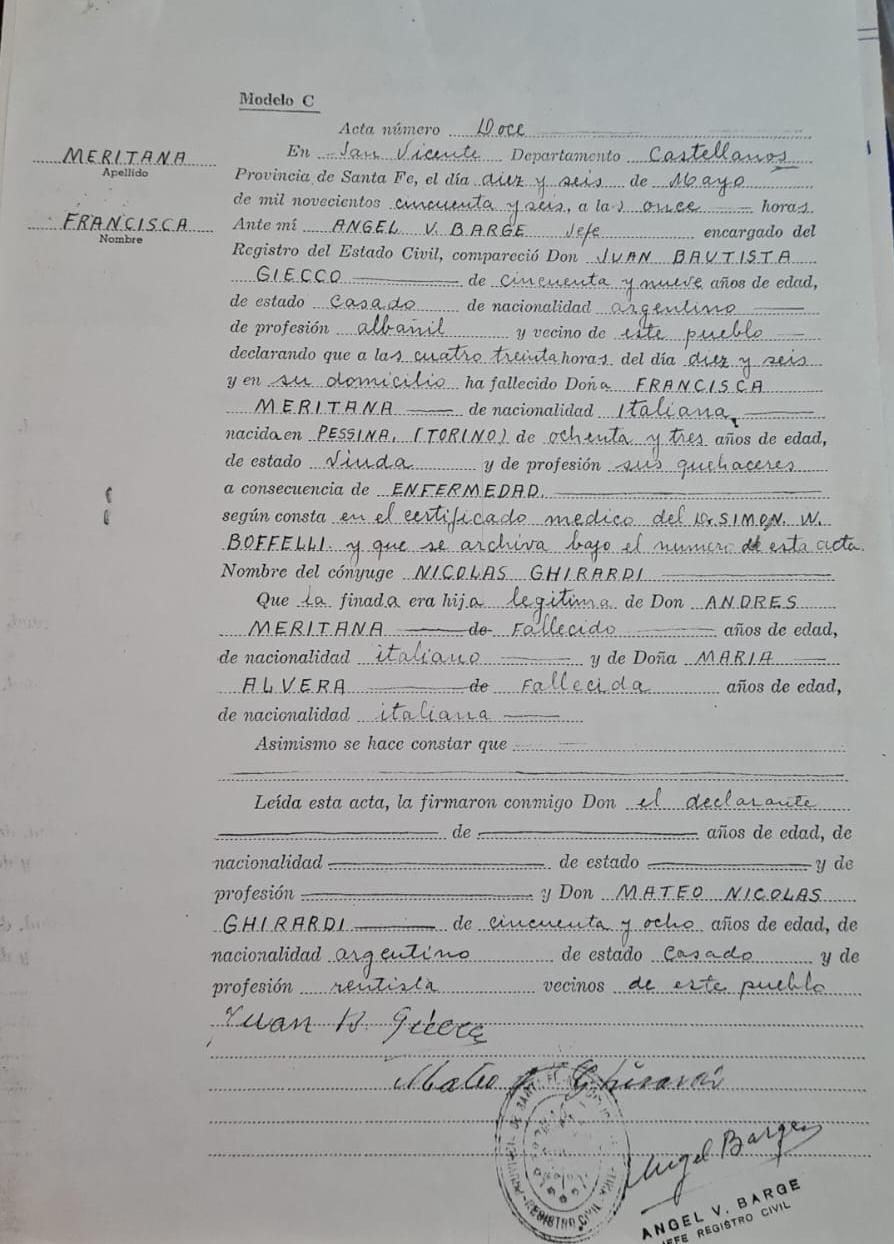 Modelo C
Acta número Doce
MERITANA
Apellido
En San Vicente Departamento Castellanos
Provincia de Santa Fe, el día diez y seis de Mayo
de mil novecientos cincuenta y seis, a las once horas.
FRANCISCA
Nombre
Ante mí ANGEL V. BARGE Jefe encargado del
Registro del Estado Civil, compareció Don JUAN BAUTISTA
GIECCO de cincuenta y nueve años de edad,
de estado casado de nacionalidad argentino
de profesión albañil y vecino de este pueblo
declarando que a las cuatro treinta horas del día diez y seis
y en su domicilio ha fallecido Doña FRANCISCA
MERITANA de nacionalidad Italiana,
nacida en PESSINA, (TORINO) de ochenta y tres años de edad,
de estado Viuda y de profesión sus quehaceres
a consecuencia de ENFERMEDAD.
según consta en el certificado medico del Dr. SIMON. W.
BOFFELLI. y que se archiva bajo el numero de esta acta.
Nombre del cónyuge NICOLAS GHIRARDI
Que la finada era hija legitima de Don ANDRES
MERITANA de Fallecido años de edad,
de nacionalidad italiano y de Doña MARIA
ALVERA de Fallecida años de edad,
de nacionalidad italiana
Asimismo se hace constar que
Leída esta acta, la firmaron conmigo Don el declarante
de años de edad, de
nacionalidad de estado y de
profesión y Don MATEO NICOLAS
GHIRARDI de cincuenta y ocho años de edad, de
nacionalidad argentino de estado Casado y de
profesión rentista vecinos de este pueblo
Juan B. Giecco
Mateo Ghirardi
Angel Barge
REGISTRO CIVIL
ANGEL V. BARGE
JEFE REGISTRO CIVIL